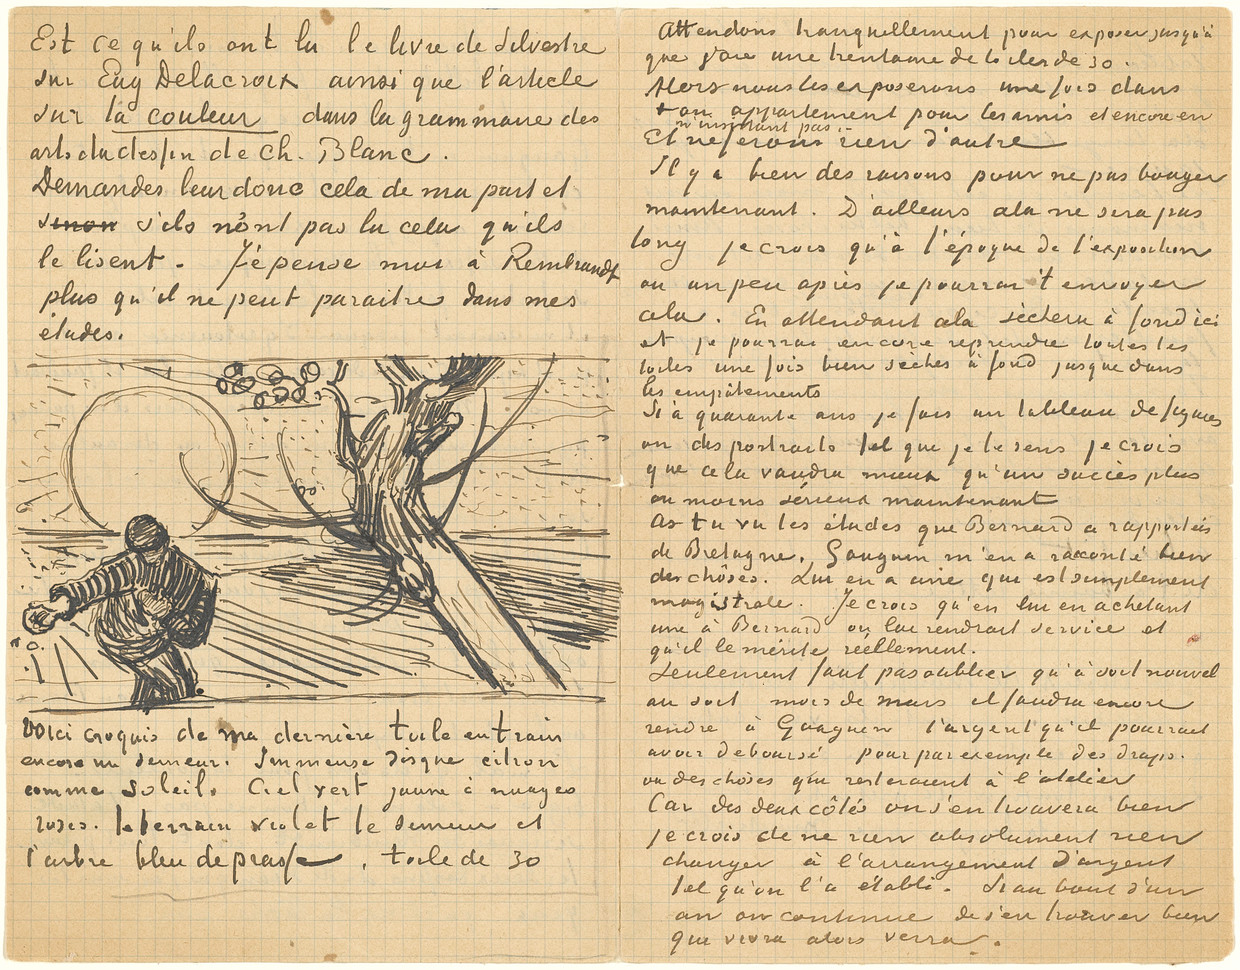 Est ce qu'ils ont lu le livre de Silvestre
sur Eug Delacroix ainsi que l'article
sur la couleur dans la grammaire des
arts du dessin de Ch. Blanc.
Demandes leur donc cela de ma part et
sinon s'ils n'ont pas lu cela qu'ils
le lisent. J'epense moi à Rembrandt
plus qu'il ne peut paraitre dans mes
études.
Voici croquis de ma dernière toile en train
encore un semeur. Immense disque citron
comme soleil. Ciel vert jaune à nuages
roses. le terrain violet le semeur et
l'arbre bleu de prusse. toile de 30
Attendons tranquillement pour exposer jusqu'à
que j'aie une trentaine de toiles de 30.
Alors nous les exposerons une fois dans
ton appartement pour les amis et encore en
n'insistant pas.
Et ne ferons rien d'autre
Il y a bien des raisons pour ne pas bouger
maintenant. D'ailleurs cela ne sera pas
long je crois qu'à l'époque de l'exposition
ou un peu après je pourrai t'envoyer
cela. En attendant cela sechera à fond ici
et je pourrai encore reprendre toutes les
toiles une fois bien sèches à fond jusque dans
les empâtements
Si à quarante ans je fais un tableau de figures
ou des portraits tel que je le sens je crois
que cela vaudra mieux qu'un succès plus
ou moins sérieux maintenant
As tu vu les études que Bernard a rapportées
de Bretagne, Gauguin m'en a raconté bien
des chôses. Lui en a une qui est simplement
magistrale. Je crois qu'en lui en achetant
une à Bernard on lui rendrait service et
qu'il le mérite réellement.
Seulement faut pas oublier qu'à soit nouvel
an soit mois de mars il faudra encore
rendre à Gauguin l'argent qu'il pourrait
avoir deboursé pour par exemple des draps.
ou des choses qui resteraient à l'atelier
Car des deux côtés on s'en trouvera bien
je crois de ne rien absolument rien
changer à l'arrangement d'argent
tel qu'on l'a établi. Si au bout d'un
an on continue de s'en trouver bien
qui vivra alors verra.